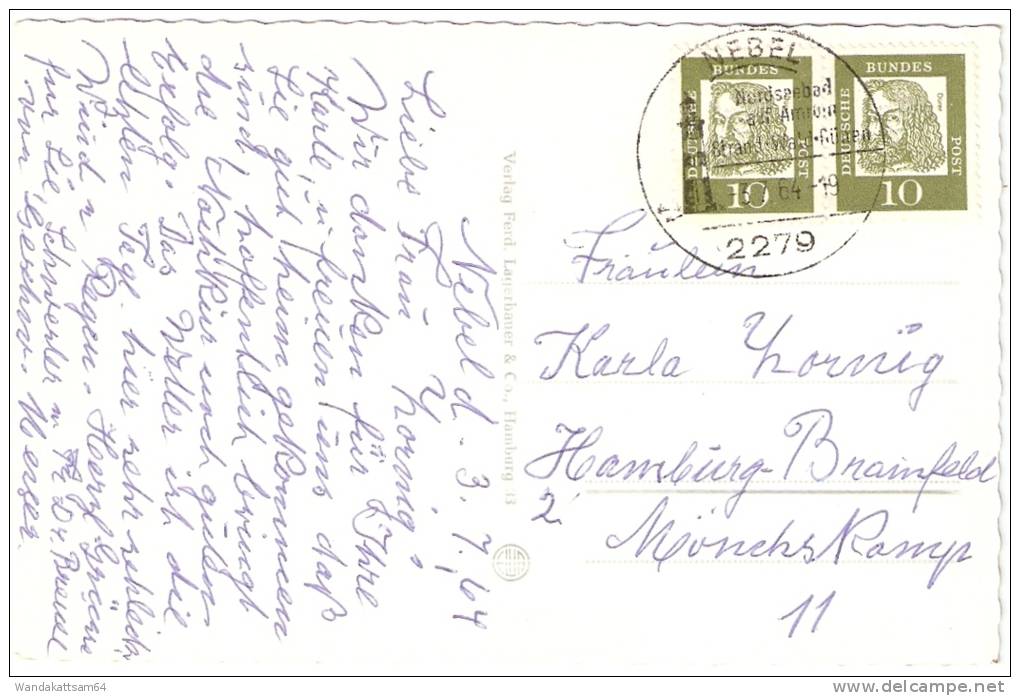 Nebel d. 3. 7. 64
Liebe Frau Hornig!
Wir danken für Ihre
Karte, u. freuen uns daß
Sie gut heim gekommen
sind, hoffentlich bringt
die Nachkur noch guten
Erfolg. Das Wetter ist die
letzten Tage hier sehr schlecht
Wind u Regen. Herzl. Grüsse
für Sie, Schwester u Fr. Dr.
von Geschw.
Verlag Ferd. Lagerbauer & Co., Hamburg 13
NEBEL
Nordseebad
auf Amrum
Strand · Wald · Dünen
64 -19
2279
DEUTSCHE BUNDES POST
10
DEUTSCHE BUNDES POST
Dürer
10
Fräulein
Karla Hornig
Hamburg-Bramfeld
2
Mönchskamp
11
Wandakattsam64
www.delcampe.net